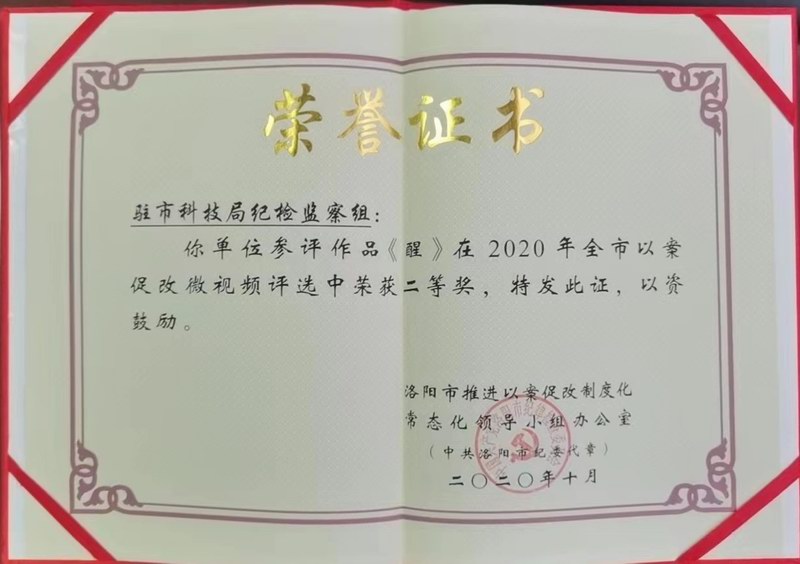 荣誉证书
驻市科技局纪检监察组：
你单位参评作品《醒》在2020年全市以案
促改微视频评选中荣获二等奖，特发此证，以资
鼓励。
洛阳市推进以案促改制度化
常态化领导小组办公室
（中共洛阳市纪委代章）
二〇二〇年十月